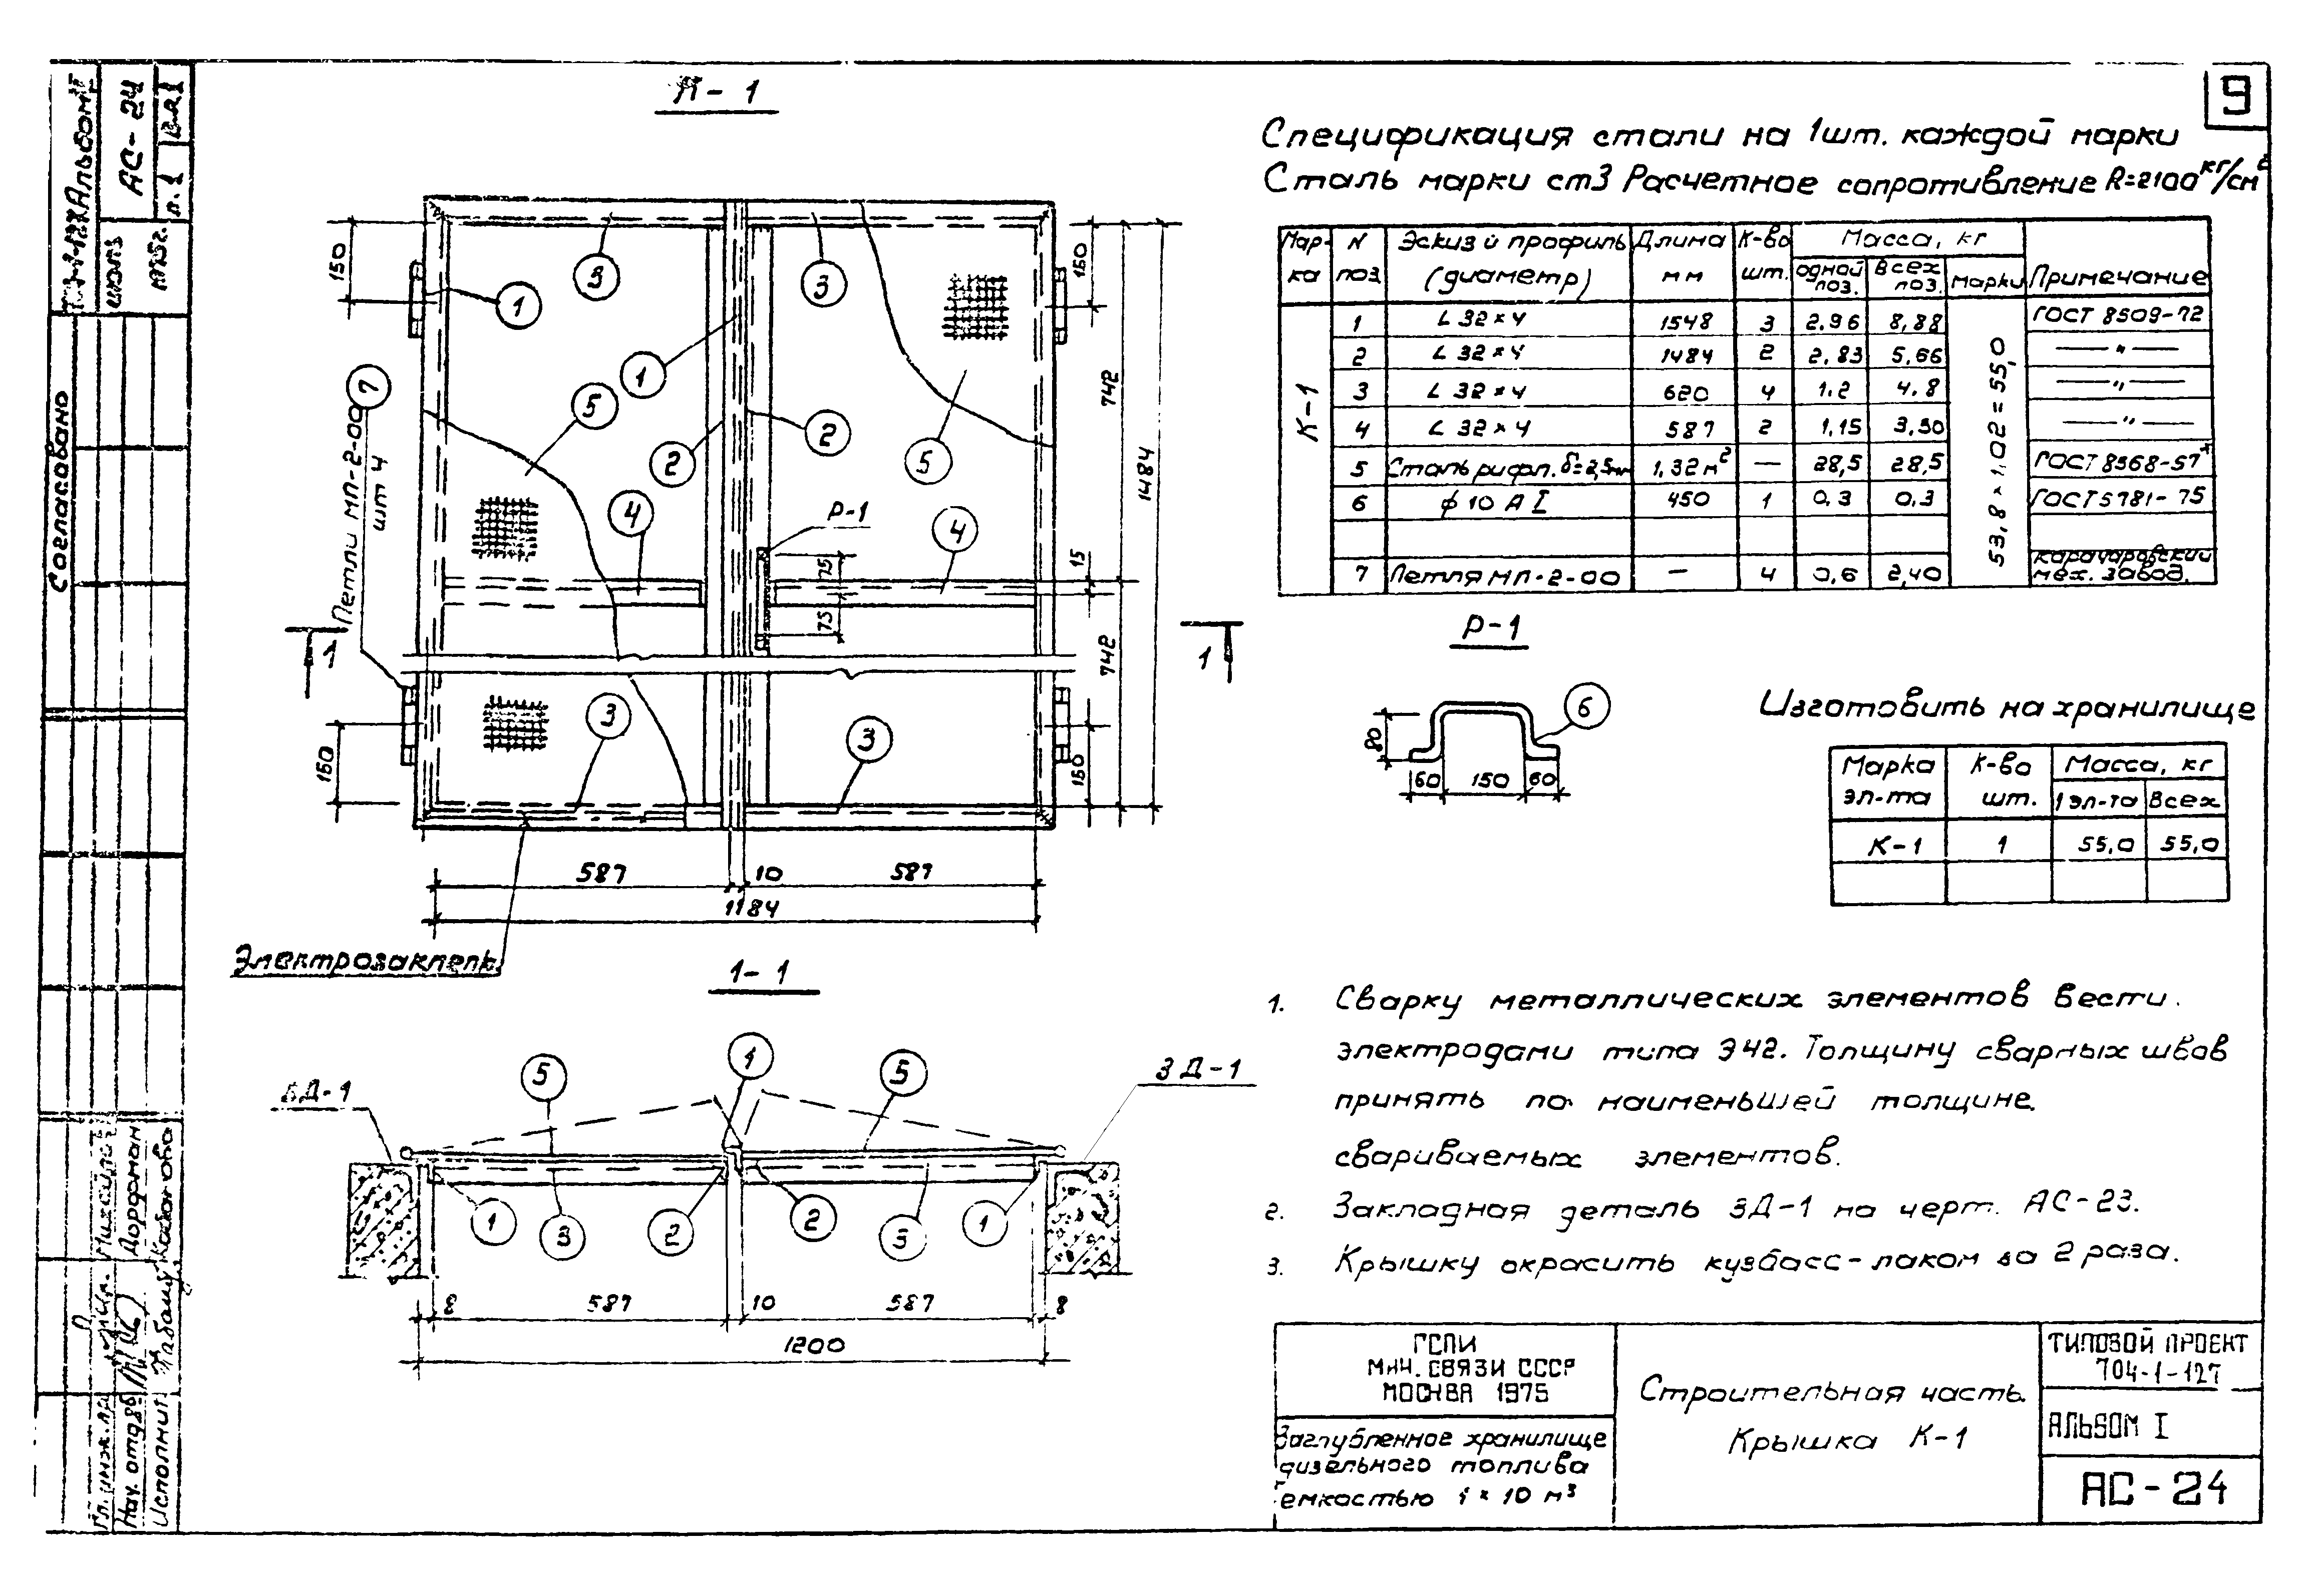 9
Альбом I
АС-24
л. 1
Согласовано
К-1
150
150
1
3
3
1
5
2
2
5
4
4
Р-1
75
75
15
742
742
1484
7
Петли МП-2-00
шт 4
1
1
3
3
150
150
587
10
587
1184
Электрозаклепк.
1-1
ЗД-1
5
1
5
ЗД-1
1
3
2
2
3
1
8
587
10
587
8
1200
Спецификация стали на 1шт. каждой марки
Сталь марки ст3 Расчетное сопротивление R=2100 кг/см²
Мар-ка
N поз
Эскиз и профиль (диаметр)
Длина мм
К-во шт.
Масса, кг
одной поз.
всех поз.
марки
Примечание
К-1
1 L 32×4 1548 3 2.96 8,88 ГОСТ 8509-72
2 L 32×4 1484 2 2,83 5,66 — " —
3 L 32×4 620 4 1.2 4.8 — " —
4 L 32×4 587 2 1,15 3,30 — " —
5 Сталь рифл. δ=2,5мм 1,32 м² — 28,5 28,5 ГОСТ 8568-57*
6 ф 10 А I 450 1 0,3 0,3 ГОСТ 5781-75
7 Петля МП-2-00 — 4 0,6 2,40 Карачаровский мех. завод.
53,8 × 1,02 = 55,0
Р-1
6
80
60
150
60
Изготовить на хранилище
Марка эл-та
К-во шт.
Масса, кг
1 эл-та
Всех
К-1 1 55,0 55,0
1. Сварку металлических элементов вести.
электродами типа Э42. Толщину сварных швов
принять по наименьшей толщине
свариваемых элементов.
2. Закладная деталь ЗД-1 на черт. АС-23.
3. Крышку окрасить кузбасс-лаком за 2 раза.
ГСПИ
Мин. СВЯЗИ СССР
МОСКВА 1975
Заглубленное хранилище
дизельного топлива
емкостью 1×10 м³
Строительная часть.
Крышка К-1
ТИПОВОЙ ПРОЕКТ
704-1-127
АЛЬБОМ I
АС-24
Гл. инж. пр.
Нач. отд.
Исполнил
Дорфман